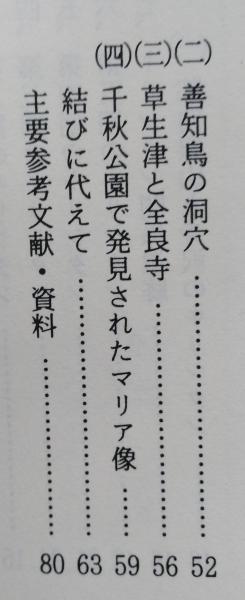 (二) 善知鳥の洞穴……………………… 52
(三) 草生津と全良寺…………………… 56
(四) 千秋公園で発見されたマリア像…… 59
結びに代えて……………………… 63
主要参考文献・資料………………… 80